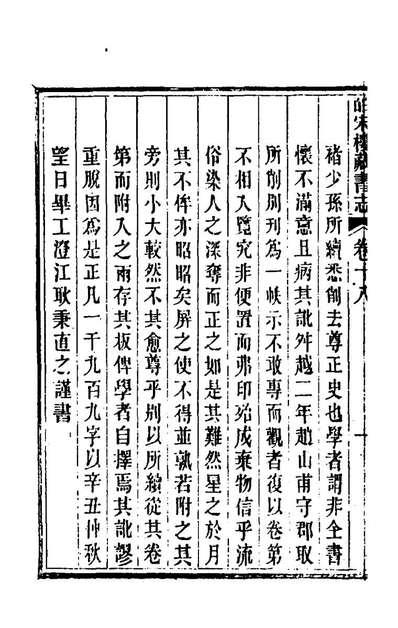 皕宋樓藏書志 卷十八 一
褚少孫所續悉削去尊正史也學者謂非全書
懷不滿意且病其訛舛越二年趙山甫守郡取
所削別刊為一帙示不敢專而觀者復以卷第
不相入覽究非便置而弗印殆成棄物信乎流
俗染人之深奪而正之如是其難然星之於月
其不侔亦昭昭矣屏之使不得並孰若附之其
旁則小大較然不其愈尊乎別以所續從其卷
第而附入之兩存其板俾學者自擇焉其訛謬
重脫因為是正凡一千九百九字以辛丑仲秋
望日畢工澄江耿秉直之謹書